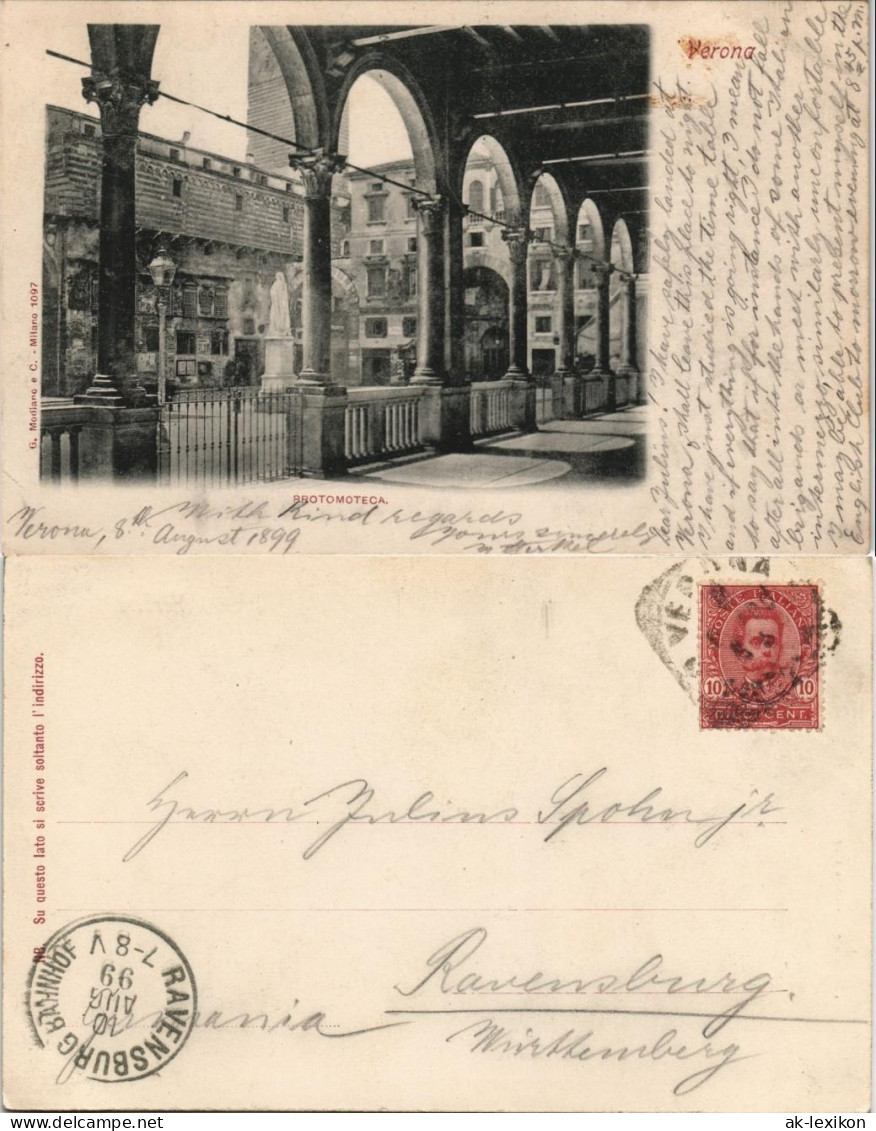 Verona
G. Modiano e C. - Milano 1097
PROTOMOTECA.
Dear Julius! I have safely landed at
Verona & shall leave this place to night
I have just studied the time table
and if everything is going right, I mean
to say that if for instance I do not fall
after all into the hands of some Italian
brigands or meet with another
intermezzo similarly uncomfortable
I may be able to present myself in the
English Club to morrow evening at 8 15 p.m.
With kind regards
yours sincerely
Verona, 8th
August 1899
NB. Su questo lato si scrive soltanto l'indirizzo.
VERONA
POSTE ITALIANE
10 10
CENT.
Herrn Julius Spohn jr.
Ravensburg
Germania
Württemberg
RAVENSBURG BAHNHOF
10
AUG
99
7-8 V
ak-lexikon